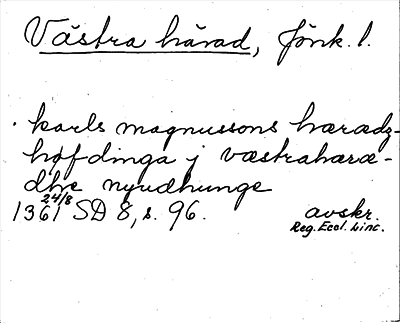 Västra härad, Jönk. l.
· karls magnussons hæradz-
høfdinga j væstrahæræ-
dhe nyudhunge
24/8
1361 SD 8, s. 96.
avskr.
Reg. Eccl. Linc.